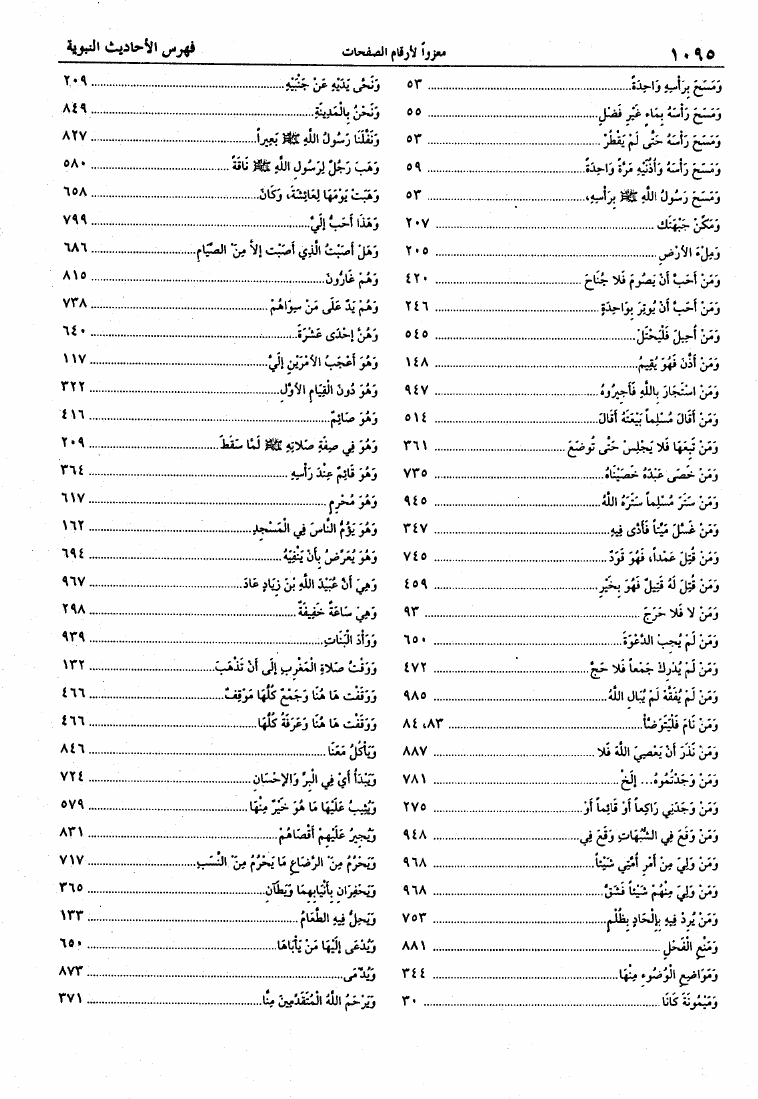 ١٠٩٥
معزواً لأرقام الصفحات
فهرس الأحاديث النبوية
وَمَسَحَ بِرَأْسِهِ وَاحِدَةً ٥٣
وَمَسَحَ رَأْسَهُ بِمَاءٍ غَيْرِ فَضْلٍ ٥٥
وَمَسَحَ رَأْسَهُ حَتَّى لَمْ يَقْطُرْ ٥٣
وَمَسَحَ رَأْسَهُ وَأُذُنَيْهِ مَرَّةً وَاحِدَةً ٥٩
وَمَسَحَ رَسُولُ اللَّهِ ﷺ بِرَأْسِهِ، ٥٣
وَمَكِّنْ جَبْهَتَكَ ٢٠٧
وَمِلْءَ الأَرْضِ ٢٠٥
وَمَنْ أَحَبَّ أَنْ يَصُومَ فَلا جُنَاحَ ٤٢٠
وَمَنْ أَحَبَّ أَنْ يُوتِرَ بِوَاحِدَةٍ ٢٤٦
وَمَنْ أُحِيلَ فَلْيَحْتَلْ ٥٤٥
وَمَنْ أَذَّنَ فَهُوَ يُقِيمُ ١٤٨
وَمَنْ اسْتَجَارَ بِاللَّهِ فَأَجِيرُوهُ ٩٤٧
وَمَنْ أَقَالَ مُسْلِماً بَيْعَتَهُ أَقَالَ ٥١٤
وَمَنْ تَبِعَهَا فَلا يَجْلِسْ حَتَّى تُوضَعَ ٣٦١
وَمَنْ خَصَى عَبْدَهُ خَصَيْنَاهُ ٧٣٥
وَمَنْ سَتَرَ مُسْلِماً سَتَرَهُ اللَّهُ ٩٤٥
وَمَنْ غَسَّلَ مَيِّتاً فَأَدَّى فِيهِ ٣٤٧
وَمَنْ قُتِلَ عَمْداً، فَهُوَ قَوَدٌ ٧٤٥
وَمَنْ قُتِلَ لَهُ قَتِيلٌ فَهُوَ بِخَيْرِ ٤٥٩
وَمَنْ لا فَلا حَرَجَ ٩٣
وَمَنْ لَمْ يُجِبِ الدَّعْوَةَ ٦٥٠
وَمَنْ لَمْ يُدْرِكْ جَمْعاً فَلا حَجَّ ٤٧٢
وَمَنْ لَمْ يُفَقِّهْ لَمْ يُبَالِ اللَّهُ ٩٨٥
وَمَنْ نَامَ فَلْيَتَوَضَّأْ ٨٣، ٨٤
وَمَنْ نَذَرَ أَنْ يَعْصِيَ اللَّهَ فَلا ٨٨٧
وَمَنْ وَجَدْتُمُوهُ... إلَخْ ٧٨١
وَمَنْ وَجَدَنِي رَاكِعاً أَوْ قَائِماً أَوْ ٢٧٥
وَمَنْ وَقَعَ فِي الشُّبُهَاتِ وَقَعَ فِي ٩٤٨
وَمَنْ وَلِيَ مِنْ أَمْرِ أُمَّتِي شَيْئاً ٩٦٨
وَمَنْ وَلِيَ مِنْهُمْ شَيْئاً فَشَقَّ ٩٦٨
وَمَنْ يُرِدْ فِيهِ بِإِلْحَادٍ بِظُلْمٍ ٧٥٣
وَمَنْعِ الْفَحْلِ ٨٨١
وَمَوَاضِعِ الْوُضُوءِ مِنْهَا ٣٤٤
وَمَيْمُونَةَ كَانَا ٣٠
وَنَحَّى يَدَيْهِ عَنْ جَنْبَيْهِ ٢٠٩
وَنَحْنُ بِالْمَدِينَةِ ٨٤٩
وَنَفَّلَنَا رَسُولُ اللَّهِ ﷺ بَعِيراً ٨٢٧
وَهَبَ رَجُلٌ لِرَسُولِ اللَّهِ ﷺ نَاقَةً ٥٨٠
وَهَبَتْ يَوْمَهَا لِعَائِشَةَ، وَكَانَ ٦٥٨
وَهَذَا أَحَبُّ إلَيَّ ٧٩٩
وَهَلْ أَصَبْتُ الَّذِي أَصَبْتُ إلاَّ مِنَ الصِّيَامِ ٦٨٦
وَهُمْ غَارُّونَ ٨١٥
وَهُمْ يَدٌ عَلَى مَنْ سِوَاهُمْ ٧٣٨
وَهُنَّ إحْدَى عَشْرَةَ ٦٤٠
وَهُوَ أَعْجَبُ الأَمْرَيْنِ إلَيَّ ١١٧
وَهُوَ دُونَ الْقِيَامِ الأَوَّلِ ٣٢٢
وَهُوَ صَائِمٌ ٤١٦
وَهُوَ فِي صِفَةِ صَلاتِهِ ﷺ لَمَّا سَقَطَ ٢٠٩
وَهُوَ قَائِمٌ عِنْدَ رَأْسِهِ ٣٦٤
وَهُوَ مُحْرِمٍ ٦١٧
وَهُوَ يَؤُمُّ النَّاسَ فِي الْمَسْجِدِ ١٦٢
وَهُوَ يُعَرِّضُ بِأَنْ يَنْفِيَهُ ٦٩٤
وَهِيَ أَنَّ عُبَيْدَ اللَّهِ بْنَ زِيَادٍ عَادَ ٩٦٧
وَهِيَ سَاعَةٌ خَفِيفَةٌ ٢٩٨
وَوَأْدَ الْبَنَاتِ ٩٣٩
وَوَقْتُ صَلاةِ الْمَغْرِبِ إلَى أَنْ تَذْهَبَ ١٣٢
وَوَقَفْت هَا هُنَا وَجَمْعٌ كُلُّهَا مَوْقِفٌ ٤٦٦
وَوَقَفْت هَا هُنَا وَعَرَفَةُ كُلُّهَا ٤٦٦
وَيَأْكُلُ مَعَنَا ٨٤٦
وَيَبْدَأُ أَيْ فِي الْبِرِّ وَالإِحْسَانِ ٧٢٤
وَيُثِيبُ عَلَيْهَا مَا هُوَ خَيْرٌ مِنْهَا ٥٧٩
وَيُجِيرُ عَلَيْهِمْ أَقْصَاهُمْ ٨٣١
وَيَحْرُمُ مِنَ الرَّضَاعِ مَا يَحْرُمُ مِنَ النَّسَبِ ٧١٧
وَيَحْفِرَانِ بِأَنْيَابِهِمَا وَيَطَآنِ ٣٦٥
وَيَحِلُّ فِيهِ الطَّعَامُ ١٣٣
وَيُدْعَى إلَيْهَا مَنْ يَأْبَاهَا ٦٥٠
وَيُدَّمَى ٨٧٣
وَيَرْحَمُ اللَّهُ الْمُتَقَدِّمِينَ مِنَّا ٣٧١